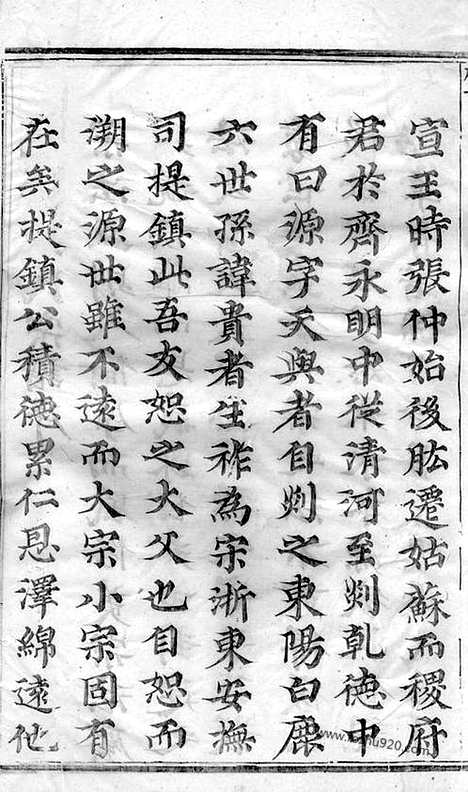 宣王時張仲始後肱遷姑蘇而稷府
君於齊永明中從清河至剡乾德中
有曰源字天與者自剡之東陽白鹿
六世孫諱貴者生祚為宋浙東安撫
司提鎮此吾友恕之大父也自恕而
溯之源世雖不遠而大宗小宗固有
在矣提鎮公積德累仁恩澤綿遠他